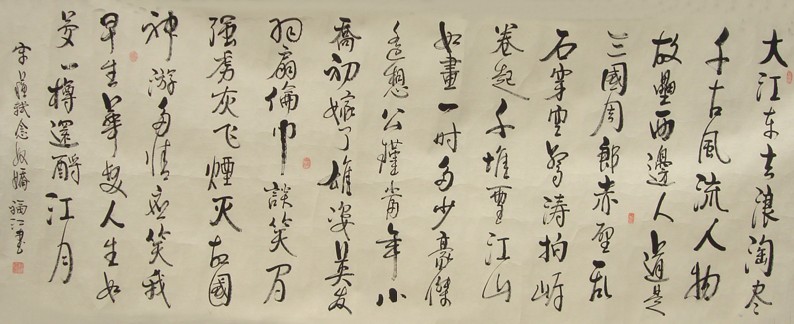 大江东去浪淘尽
千古風流人物
故壘西邊人道是
三國周郎赤壁乱
石穿空驚涛拍岸
卷起千堆雪江山
如畫一时多少豪傑
遥想公瑾當年小
喬初嫁了雄姿英发
羽扇綸巾談笑间
强虏灰飞煙灭故國
神游多情应笑我
早生華发人生如
梦一樽還酹江月
宋蘇軾念奴嬌 福江書